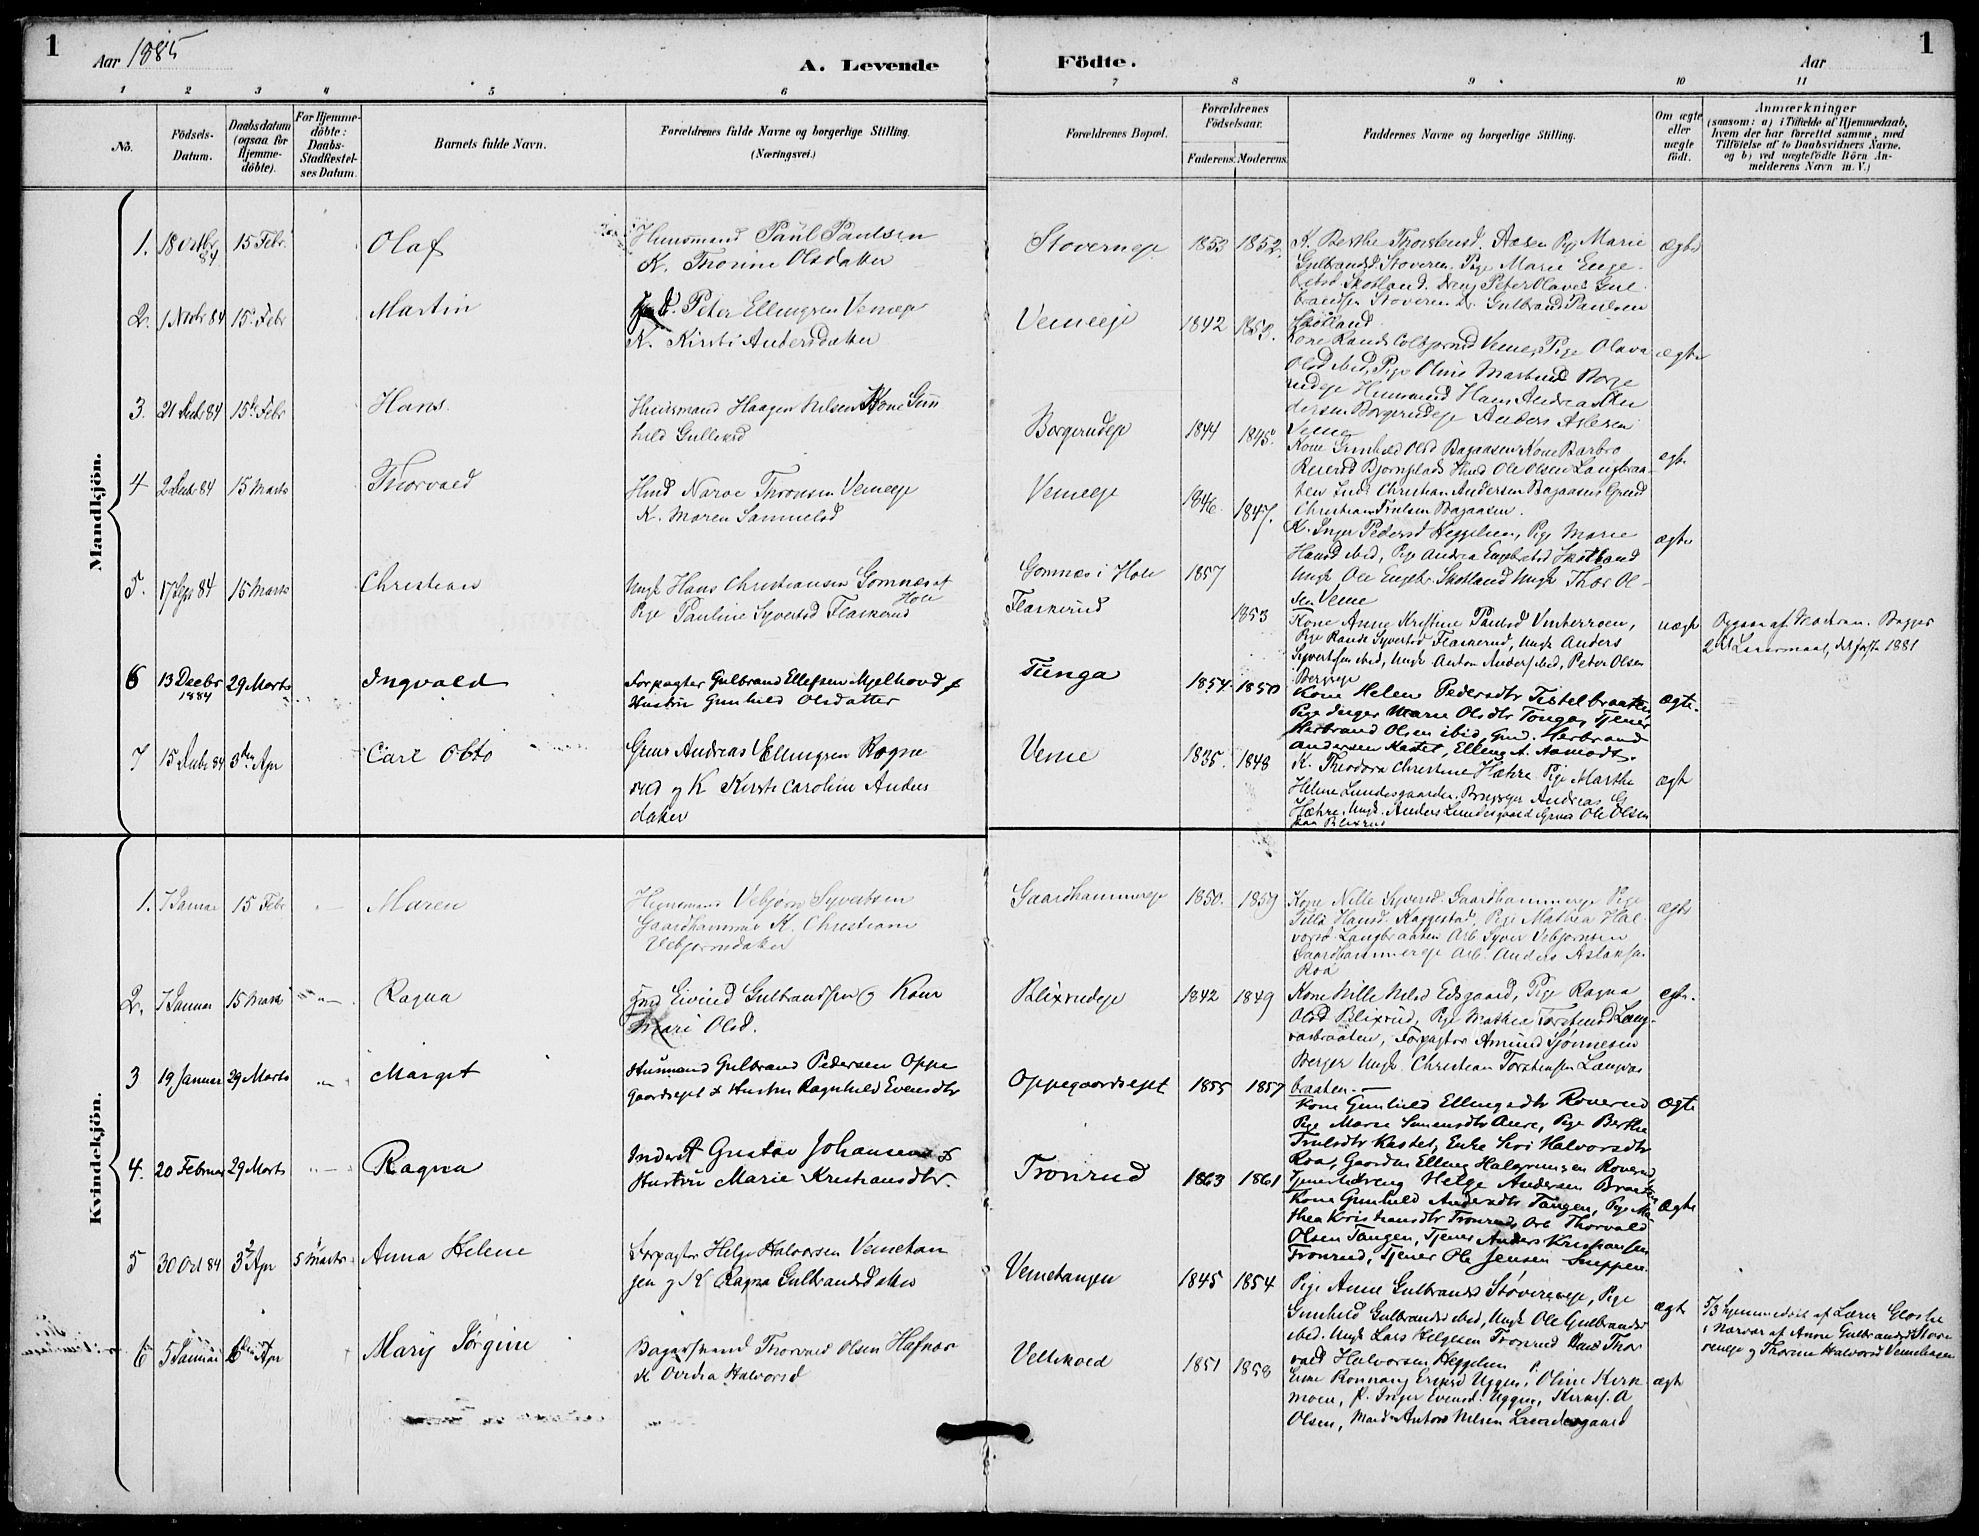 1
Aar 1885
A. Levende
Födte.
Aar
1
1 2 3 4 5 6
7 8 9 10 11
No.
Födsels-
Datum.
Daabsdatum
(ogsaa for
Hjemme-
döbte).
For Hjemme-
döbte:
Daabs-
Stadfæstel-
ses Datum.
Barnets fulde Navn.
Forældrenes fulde Navne og borgerlige Stilling.
(Næringsvei.)
Forældrenes Bopæl.
Forældrenes
Födselsaar.
Faderens. Moderens.
Faddernes Navne og borgerlige Stilling.
Om ægte
eller
uægte
födt.
Anmærkninger
(saasom: a) i Tilfælde af Hjemmedaab,
hvem der har forrettet samme, med
Tilföielse af to Daabsvidners Navne,
og b) ved uægtefödte Börn An-
melderens Navn m. V.)
Mandkjön.
1. 18 Octbr 84 15 Febr. Olaf
Huusmand Paul Paulsen
K. Thorine Olsdatter
Stoverneje 1853 1852.
K. Berthe Thorstensd. Aasen Pige Marie
Gulbrandsd. Stoveren. Pige Marie Enge-
bretsd. Skotland. Dreng Peter Olaves Gul-
brandsen Stoveren. Gulbrand Paulsen
Skotland
ægte
2. 1 Novbr 84 15 Febr Martin
Peter Ellingsen Vemeeje
K. Kirsti Andersdatter
Vemeeje 1842 1853.
Kone Randi Colbjørnsd Veme, Pige Olava
Olsd ibid, Pige Oline Martinsd Borge
rudeje Huusmand Hans Andreas An
dersen Borgerudeje Anders Aslesen
Veme
ægte
3. 21 Decb 84 15de Febr Hans.
Huusmand Haagen Nilsen Kone Gun
hild Gulliksd
Borgerudeje 1844 1845.
Kone Gunhild Olsd Bagaasen Kone Barbro
Reiersd Bjørnstads Husd Ole Olsen Langbraa-
ten Inds Christian Andersen Bagaasens Grund
Christian Truelsen Bagaasen.
egte
4 2 Decb 84 15 Marts Thorvald
Husd Narve Thronsen Vemeeje
K. Maren Samuelsd
Vemeeje 1846 1847.
K. Inger Pedersd Heggelien, Pige Marie
Hansd ibid, Pige Andrea Engebretsd Skotland
Ungk Ole Engebr. Skotland Ungk Thor Ol-
sen Veme
ægte
5. 17 Sept 84 15 Marts Christian
Ungk Hans Christiansen Gomnæs af
Hole
Pige Pauline Syvertsd Flaskerud
Gomnæs i Hole 1857
Flaskerud 1853
Kone Anne Kristine Paulsd Vinterroen,
Pige Randi Syvertsd Flaskerud, Ungk Anders
Syvertsen ibid, Ungk Anton Anders ibid, Peter Olsen
Bergseje
uægte
2det Leiermaal, det første 1881
6 13 Decbr 1884 29 Marts Ingvald
Forpagter Gulbrand Ellefsen Mjelhovd &
Hustru Gunhild Olsdatter
Tunga 1854 1850
Kone Helen Pedersdtr Tistelbraaten
Pige Inger Marie Olsdtr Tonga, Tjener
Harbrand Olsen ibid, Gmd. Harbrand
Andersen Kastet, Elling A. Aamodt.
ægte.
7 15 Decb 84 3die Apr Carl Otto
Grms Andreas Ellingsen Rogne
rud og K Kirsti Caroline Anders
datter
Veme 1835. 1848
K. Theodora Christine Hæhre Pige Marthe
Helene Lundesgaarden, Andreas G
Hæhre, Ungk. Anders Lundesgaard Grms Ole Olsen
Blixrud
ægt
Kvindekjön.
1. 7 Januar 15 Febr Maren
Huusmand Vebjørn Syvertsen
Gaardhammer K. Christiane
Vebjørnsdatter
Gaardhammereje 1850. 1859
Kone Nille Syversd. Gaardhammereje Pige
Gilla Hansd. Kaggestad, Pige Mathea Hal-
vorsd. Langbraaten Arb. Syver Vebjørnsen
Gaardhammereje Arb. Anders Aslaksen
Roa
ægte
2. 7 Januar 15 Marts Ragna
Eivind Gulbrandsen og Kone
Mari Olsd.
Blixrudeje 1842 1849
Kone Nille Nilsd Edsgaard, Pige Ragna
Olsd Blixrud, Pige Mathea Torstensd Lang-
rasbraaten, Forpagter Amund Tjønnesen
Berger Ungk. Christian Torstensen Langvas
braaten.
egte.
3 19 Januar 29 Marts Margit
Husmand Gulbrand Pedersen Oppe
gaardsejet & Hustru Ragnhild Evensdtr
Oppegaardsejet 1855 1857
Kone Gunhild Ellingsdtr Roverud
Pige Marie Simensdtr Aure, Pige Berthe
Trulsdtr Kastet, Enke Siri Halvorsdtr
Roa, Gaardm Elling Halgrimsen Roverud
Tjenerdreng Helge Andersen Braaten
ægte
4. 20 Februar 29 Marts Ragna
Inderst Gustav Johansen &
Hustru Marie Kristiansdtr.
Tronrud 1863 1861
Kone Gunhild Andersdtr Tangen, Pige Ma
thea Kristiansdtr Tronrud, Arb Thorvald
Olsen Tangen, Tjener Anders Kristiansen
Tronrud, Tjener Ole Jensen Sneppen.
Ægte
5 30 Oct 84 3 Apr 5 Marts Anna Helene
Forpagter Helge Halvorsen Vemetan
gen og K Ragna Gulbrandsdatter
Vemetangen 1845 1854
Pige Anne Gulbrandsd Støvereneje, Pige
Gunhild Gulbrandsd ibid, Ungk Ole Gulbrandsen
ibid. Ungk Lars Helgesen Tronrud Thor
vald Halvorsen Heggelien
ægt
5/3 hjemmedøbt af Lærer Gloslie
i Nærvær af Anne Gulbrandsd Stove
reneje og Thorine Halvorsd Vemetangen
6 5 Januar 6 Apr Mary Jørgine
Bagersvend Thorvald Olsen Hafnor
K Ovidia Halvorsd
Veltekvold 1851 1858
Enke Rønnaug Eriksd Uggen, P. Oline Kirk
moen, P. Inger Evensd. Uggen, Kirkes. A
Olsen, Anton Nilsen Lundesgaard
ægt